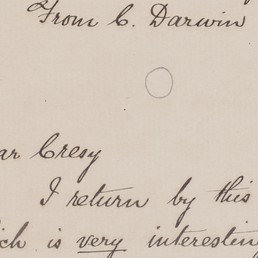 From C. Darwin
ar Cresy
I return by this
ich is very interesting